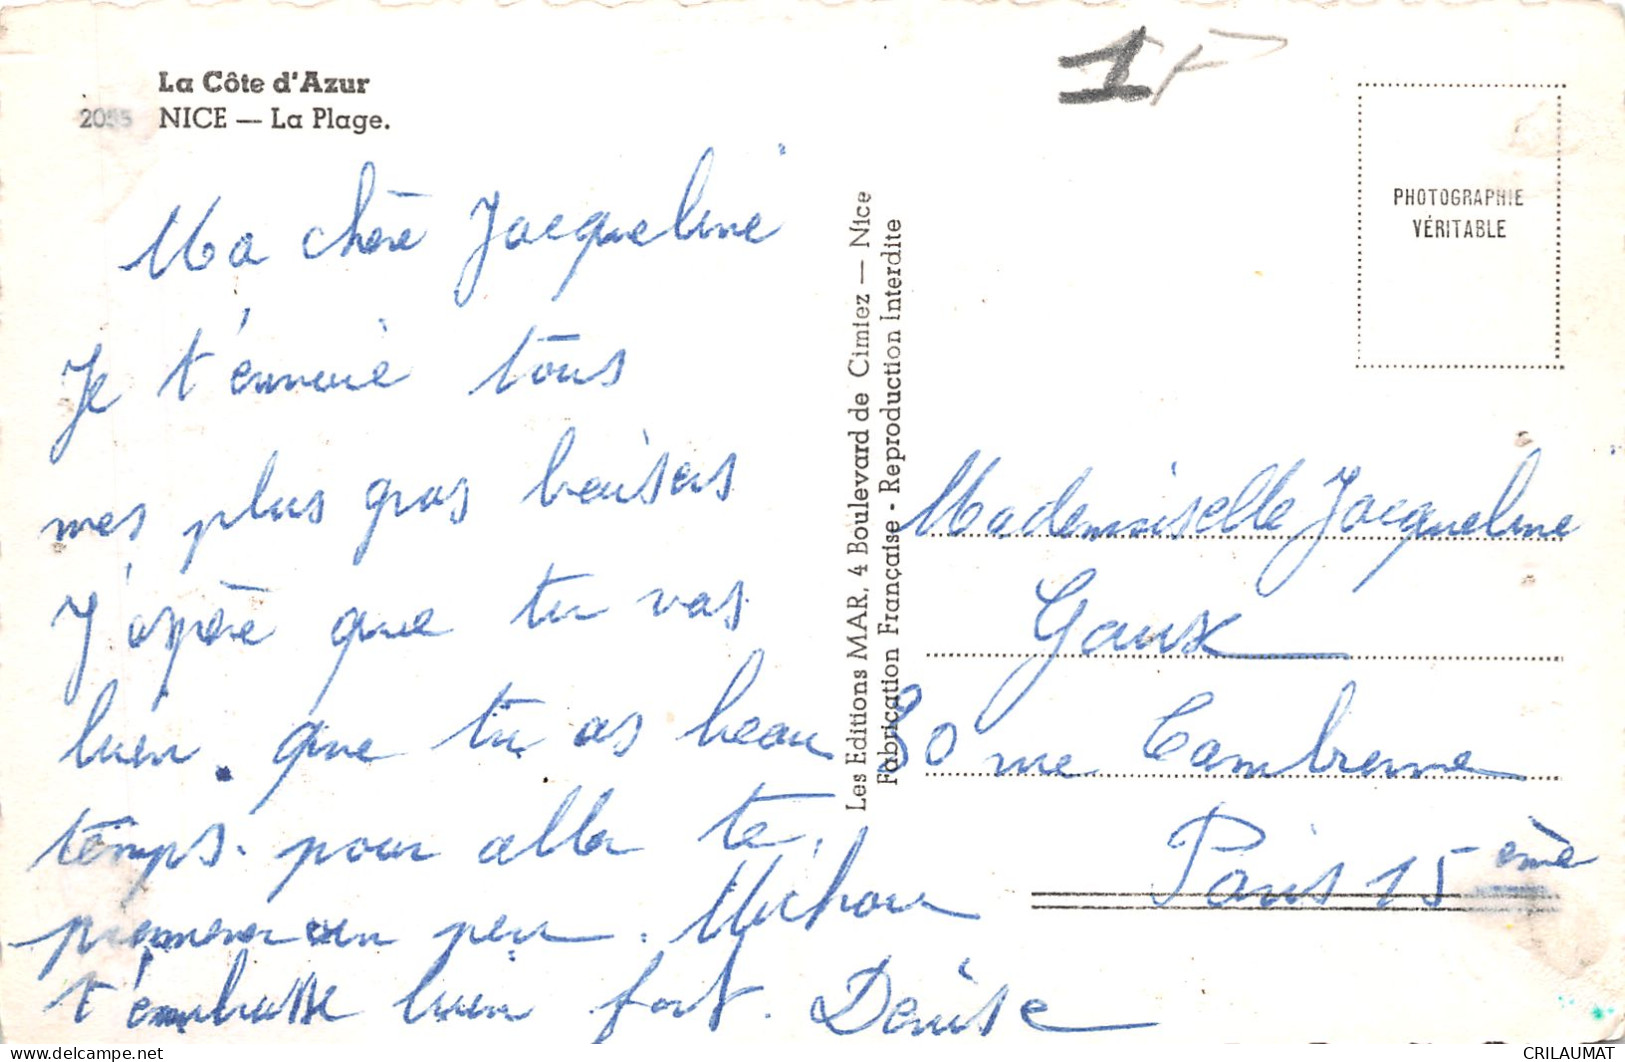 La Côte d'Azur
2055 NICE — La Plage.
1F
PHOTOGRAPHIE
VÉRITABLE
Ma chère Jacqueline
Je t'envoie tous
mes plus gros baisers
J'espère que tu vas
bien. que tu as beau
temps. pour aller te
promener un peu. Michou
t'embrasse bien fort. Denise
Les Editions MAR, 4 Boulevard de Cimiez — Nice
Fabrication Française - Reproduction Interdite
Mademoiselle Jacqueline
Gaux
80 rue Cambronne
Paris 15 ème
CRILAUMAT